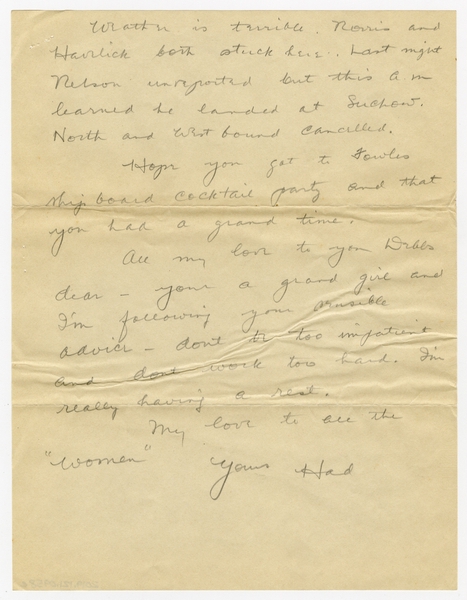 Weather is terrible. Norris and
Havelick both stuck here. Last night
Nelson unreported but this a.m
learned he landed at Suchow.
North and West bound cancelled.
Hope you got to Fowles
ship board cocktail party and that
you had a grand time.
All my love to you Debbs
dear – your a grand girl and
I'm following your sensible
advice – dont be too impatient
and dont work too hard. I'm
really having a rest.
My love to all the
"Women" Yours Had